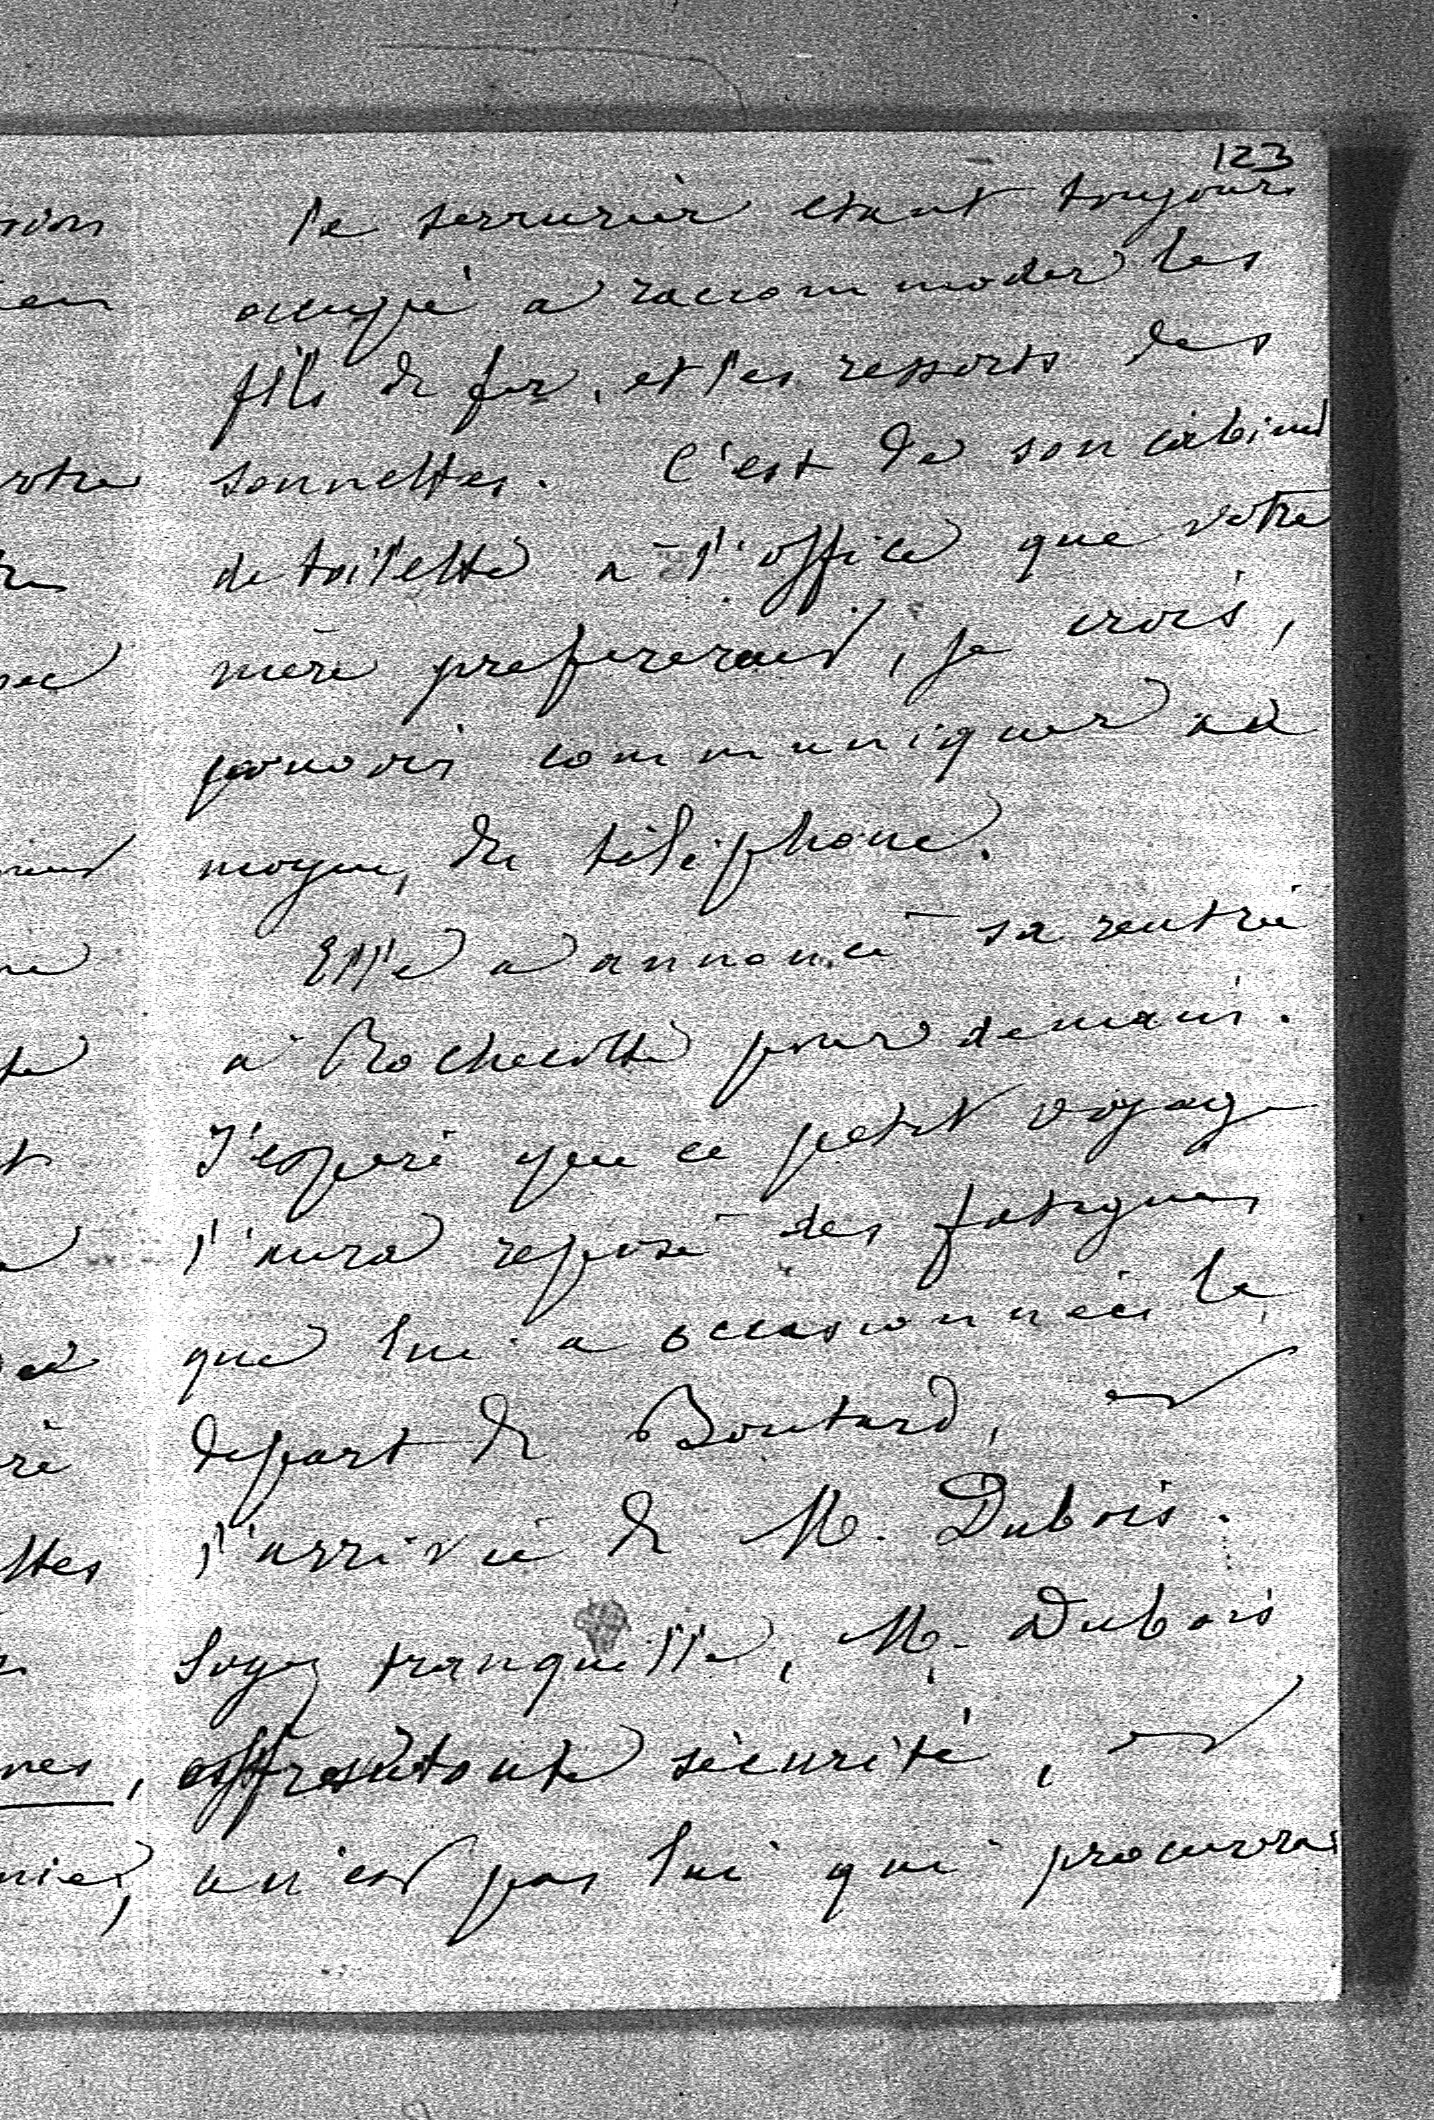 123
le serrurier étant toujours
occupé à raccommoder les
fils de fer, et les ressorts des
sonnettes. C'est de son cabinet
de toilette à l'office que votre
mère prefererait, je crois,
pouvoir communiquer au
moyen, du téléphone.
Elle a annoncé sa rentrée
à Rochecotte pour demain.
J'espère que ce petit voyage
l'aura reposé des fatigues
que lui a occasionnées le
depart de Boutard, et
l'arrivée de M. Dubois.
Soyez tranquille, M. Dubois
offre toute sécurité, et
ce n'est pas lui qui procurera